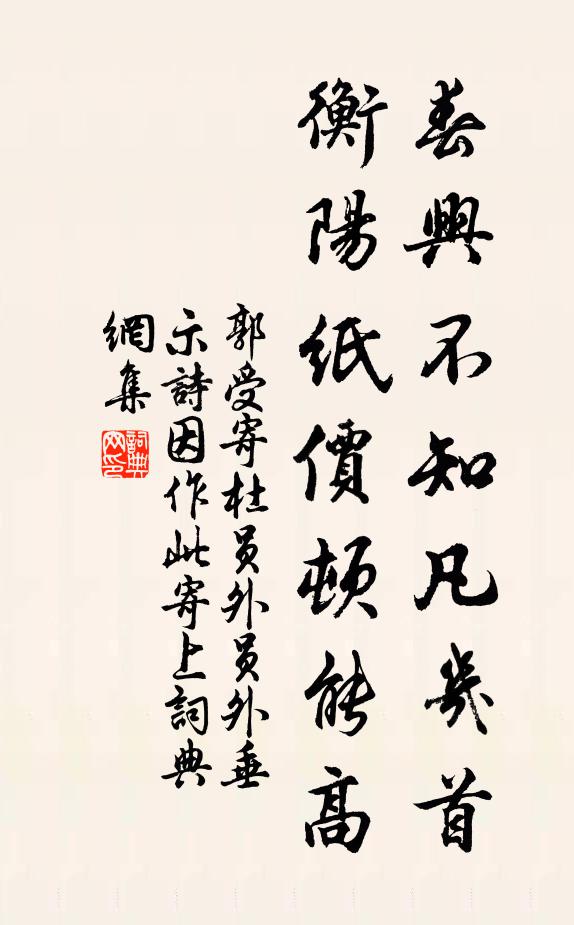 春興不知凡幾首
衡陽紙價頓能高
郭受寄杜員外員外垂
示詩因作此寄上詞典
網集
詞典網印